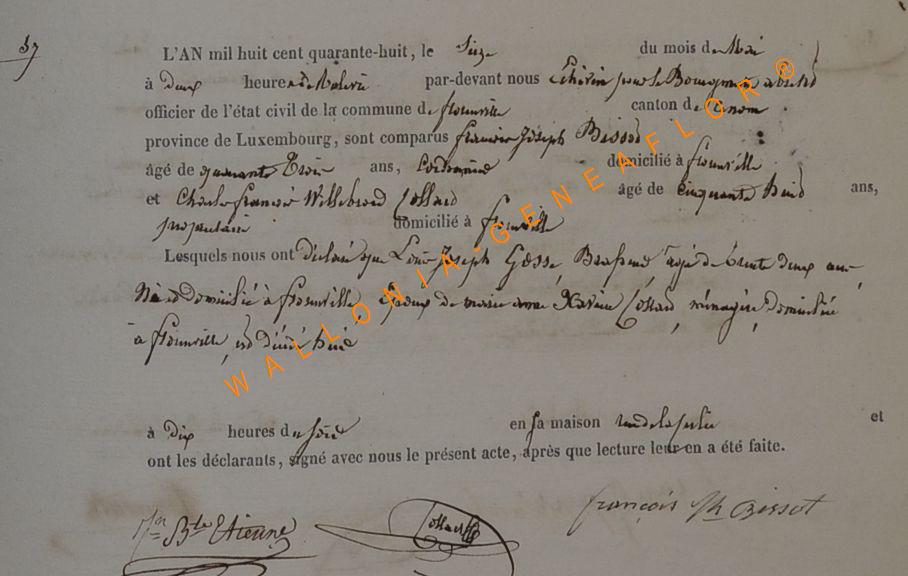 37
L'AN mil huit cent quarante-huit, le Seize du mois de Mai
à Deux heures de Relevée par-devant nous Echevin pour le Bourgmestre absent
officier de l'état civil de la commune de florenville canton de
province de Luxembourg, sont comparus françois Joseph Bissot
âgé de quarante Trois ans, Cordonnier domicilié à florenville
et Charles françois Willebrord Collard âgé de Cinquante huit ans,
propriétaire domicilié à florenville
Lesquels nous ont déclaré que Louis Joseph Gosse, Brasseur, agé de trente deux ans
Né et domicilié à florenville, Epoux de marie anne Collard, ménagère, domiciliée
à florenville, est décédé hier
à Dix heures du soir en sa maison et
ont les déclarants, signé avec nous le présent acte, après que lecture leur en a été faite.
Jn Bte Etienne Collard françois Jh Bissot
WALLONIA-GENEAFLOR®